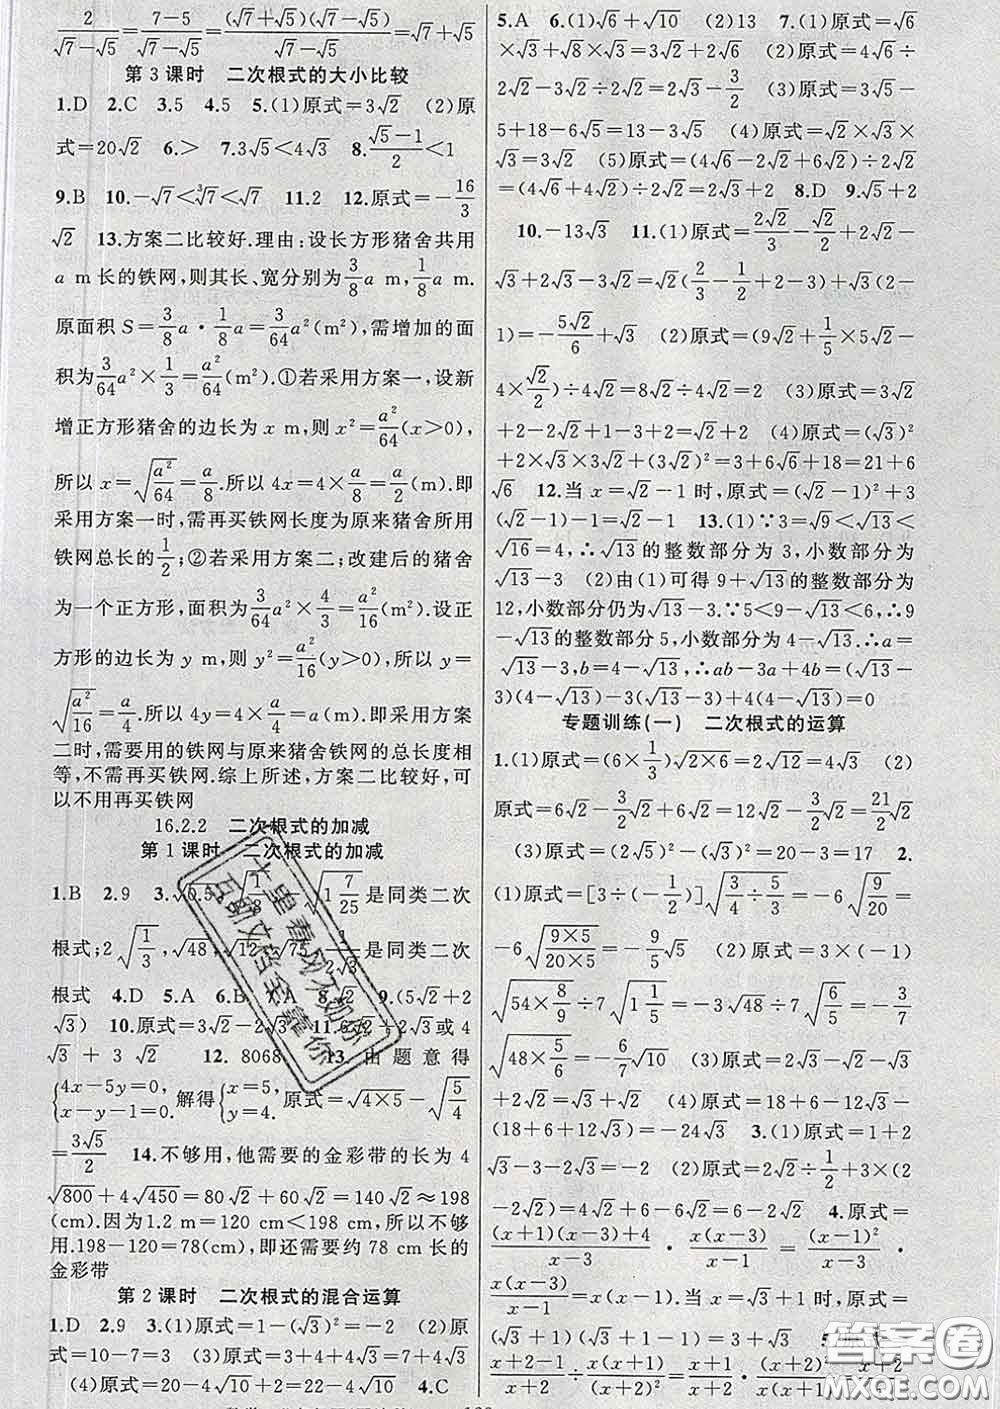 2/(√7−√5)=(7−5)/(√7−√5)=(√7+√5)(√7−√5)/(√7−√5)=√7+√5
第3课时 二次根式的大小比较
1.D 2.C 3.5 4.5 5.(1)原式=3√2 (2)原
式=20√2 6.> 7.3√5<4√3 8.(√5−1)/2<1
9.B 10.−√7<∛7<√7 11.2 12.原式=−16/3
√2 13.方案二比较好.理由:设长方形猪舍共用
a m长的铁网,则其长、宽分别为3/8a m,1/8a m.
原面积S=3/8a·1/8a=3/64a²(m²),需增加的面
积为3/64a²×1/3=a²/64(m²).①若采用方案一,设新
增正方形猪舍的边长为x m,则x²=a²/64(x>0),
所以x=√(a²/64)=a/8.所以4x=4×a/8=a/2(m).即
采用方案一时,需再买铁网长度为原来猪舍所用
铁网总长的1/2;②若采用方案二;改建后的猪舍
为一个正方形,面积为3/64a²×4/3=a²/16(m²).设正
方形的边长为y m,则y²=a²/16(y>0).所以y=
√(a²/16)=a/4.所以4y=4×a/4=a(m).即采用方案
二时,需要用的铁网与原来猪舍铁网的总长度相
等,不需再买铁网.综上所述,方案二比较好,可
以不用再买铁网
16.2.2 二次根式的加减
第1课时 二次根式的加减
1.B 2.9 3.√0.5,√(1/8),√(1 7/25)是同类二次
根式;2√(1/3),√48,√12,√75,1/(2√3)是同类二次
根式 4.D 5.A 6.B 7.A 8.√2 9.(5√2+2
√3) 10.原式=3√2−2√3 11.6√2+2√3或4
√3+3√2 12.8068 13.由题意得
{4x−5y=0, x−y=1. 解得{x=5, y=4. 原式=√(4×5)−√(5/4)
=3√5/2 14.不够用,他需要的金彩带的长为4
√800+4√450=80√2+60√2=140√2≈198
(cm).因为1.2 m=120 cm<198 cm,所以不够
用.198−120=78(cm),即还需要约78 cm长的
金彩带
第2课时 二次根式的混合运算
1.D 2.9 3.(1)原式=1−(√3)²=−2 (2)原
式=10−7=3 (3)原式=3+4+4√3=7+4√3
(4)原式=20−4√10+2=22−4√10 4.C
5.A 6.(1)√6+√10 (2)13 7.(1)原式=√6
×√3+√8×√3=3√2+2√6 (2)原式=4√6÷
2√2−3√2÷2√2=2√3−3/2 (3)原式=3√5−
5+18−6√5=13−3√5 (4)原式=√2×√3×
√3=3√2 (5)原式=(4√6−2√2+6√2)÷2√2
=(4√6+4√2)÷2√2=2√3+2 8.D 9.√5+2
10.−13√3 11.(1)原式=2√2/3−√2/2+2√2−
√3+2√3−3√2=(2/3−1/2+2−3)√2+√3(2−
1)=−5√2/6+√3 (2)原式=(9√2+1/5×5√2−
4×√2/2)÷4√2=8√2÷4√2=2 (3)原式=3√2
+2−2√2+1−3+2=√2+2 (4)原式=(√3)²
+2√2×√3×3√2+(3√2)²=3+6√6+18=21+6
√6 12.当x=√2−1时,原式=(√2−1)²+3
(√2−1)−1=√2−1 13.(1)∵3=√9<√13<
√16=4,∴√13的整数部分为3,小数部分为
√13−3 (2)由(1)可得9+√13的整数部分为
12,小数部分仍为√13−3.∵5<9−√13<6,∴9
−√13的整数部分5,小数部分为4−√13.∴a=
√13−3,b=4−√13,∴ab−3a+4b=(√13−
3)(4−√13)−3(√13−3)+4(4−√13)=0
专题训练(一) 二次根式的运算
1.(1)原式=(6×1/3)√(2×6)=2√12=4√3 (2)
原式=6√2−3/2√2+6√2=12√2−3/2√2=21/2√2
(3)原式=(2√5)²−(√3)²=20−3=17 2.
(1)原式=[3÷(−1/2)]√(3/4÷5/3)=−6×√(9/20)
=−6√((9×5)/(20×5))=−9/5√5 (2)原式=3×(−1)
√(54×8/9)÷7√(1 1/5)=−3√48÷7√(6/5)=−3/7
√(48×5/6)=−6/7√10 (3)原式=√3−√2−√3
+2√2=√3+√2 (4)原式=18+6−12√3−
(18+6+12√3)=−24√3 3.(1)原式=1+2
√3−3−2√3=−2 (2)原式=2√2÷1/2+3×(2
−2√2)=4√2+6−6√2=6−2√2 4.原式=
((x+1)(x−3)+4)/(x−3)·x(x−3)/(x−1)=(x−1)²/(x−3)·
x(x−3)/(x−1)=x(x−1).当x=√3+1时,原式=
(√3+1)(√3+1−1)=3+√3 5.原式=
(x+2−1)/(x+2)÷x(x+1)/(x+2)²=(x+1)/(x+2)·(x+2)²/(x(x+1))=(x+2)/x
十里春风不如你
互助文档全靠你
答案圈
MXQE.COM